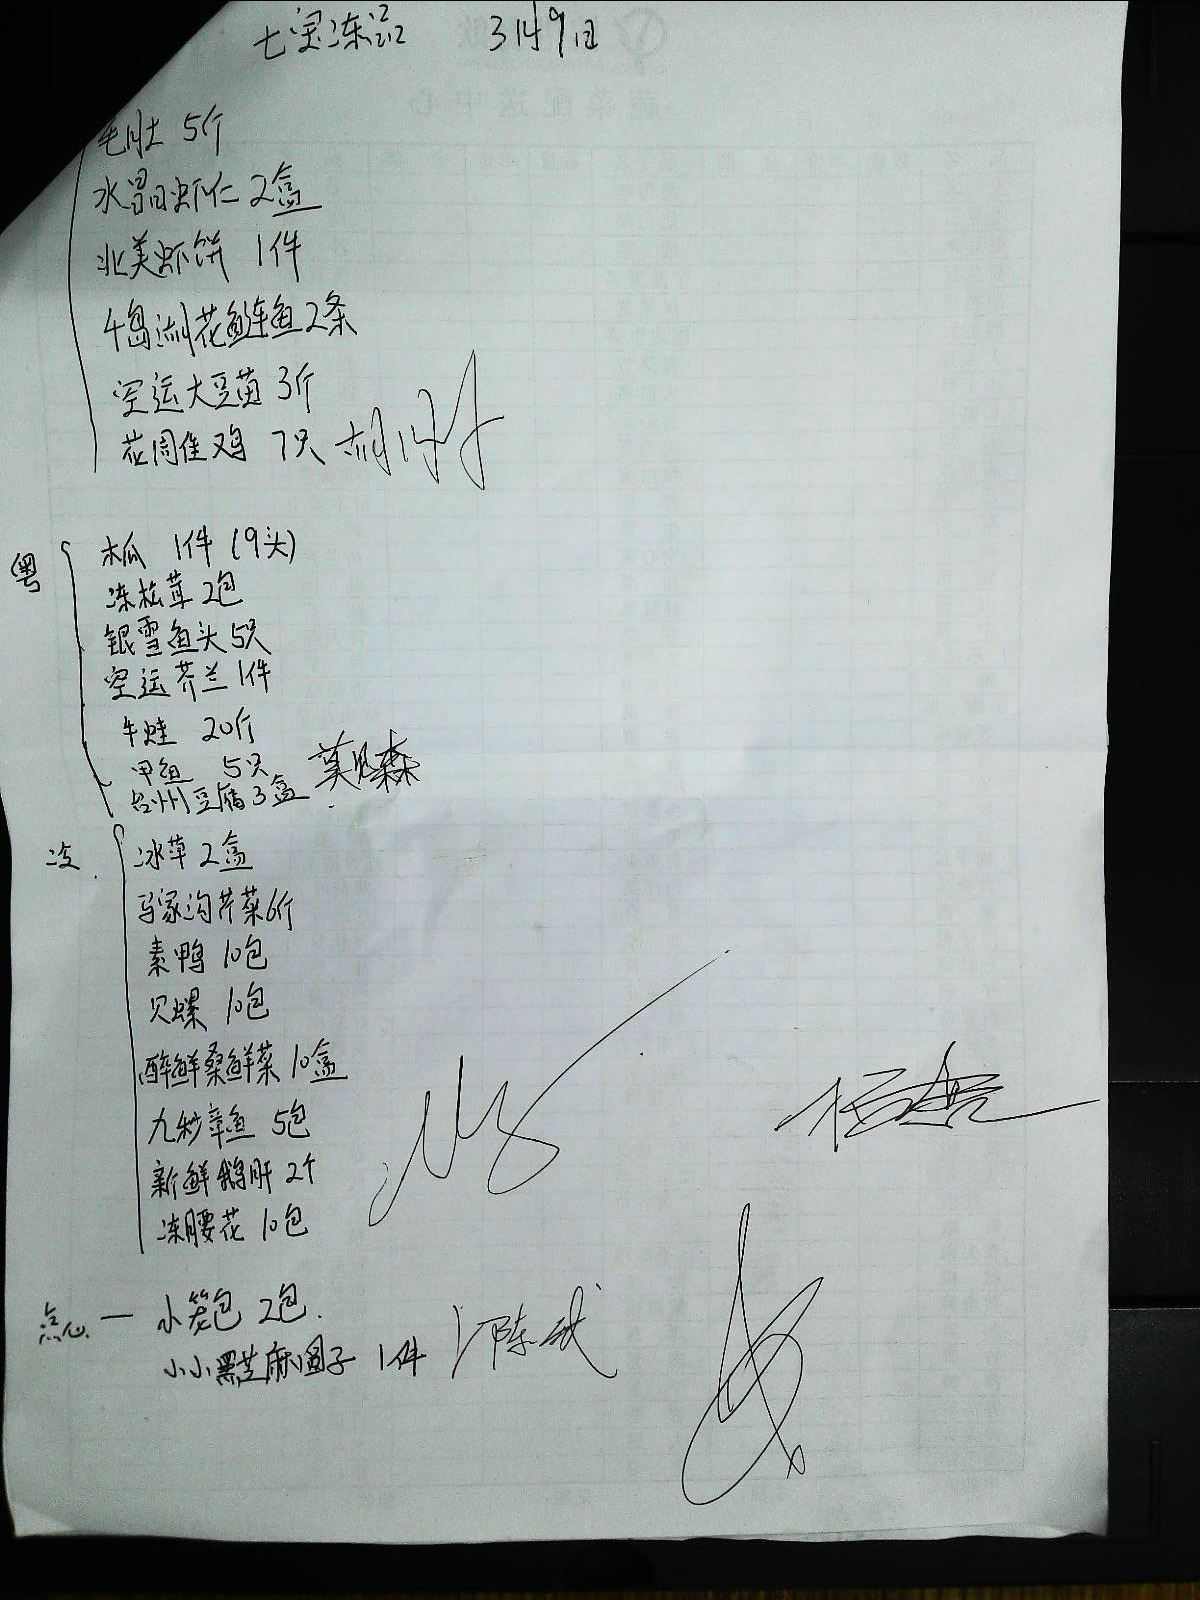 七宝冻品 3月9日
毛肚 5个
水晶虾仁 2盒
北美虾饼 1件
千岛湖花鲢鱼 2条
空运大豆苗 3斤
花周佳鸡 7只
粤
木瓜 1件 (9头)
冻松茸 2包
银雪鱼头 5只
空运芥兰 1件
牛蛙 20斤
甲鱼 5只
台州豆腐 3盒
冷
冰草 2盒
马家沟芹菜 6斤
素鸭 10包
贝螺 10包
醉鲜桑鲜菜 10盒
九秒章鱼 5包
新鲜鹅肝 2个
冻腰花 10包
点心 — 小笼包 2包.
小小黑芝麻圆子 1件